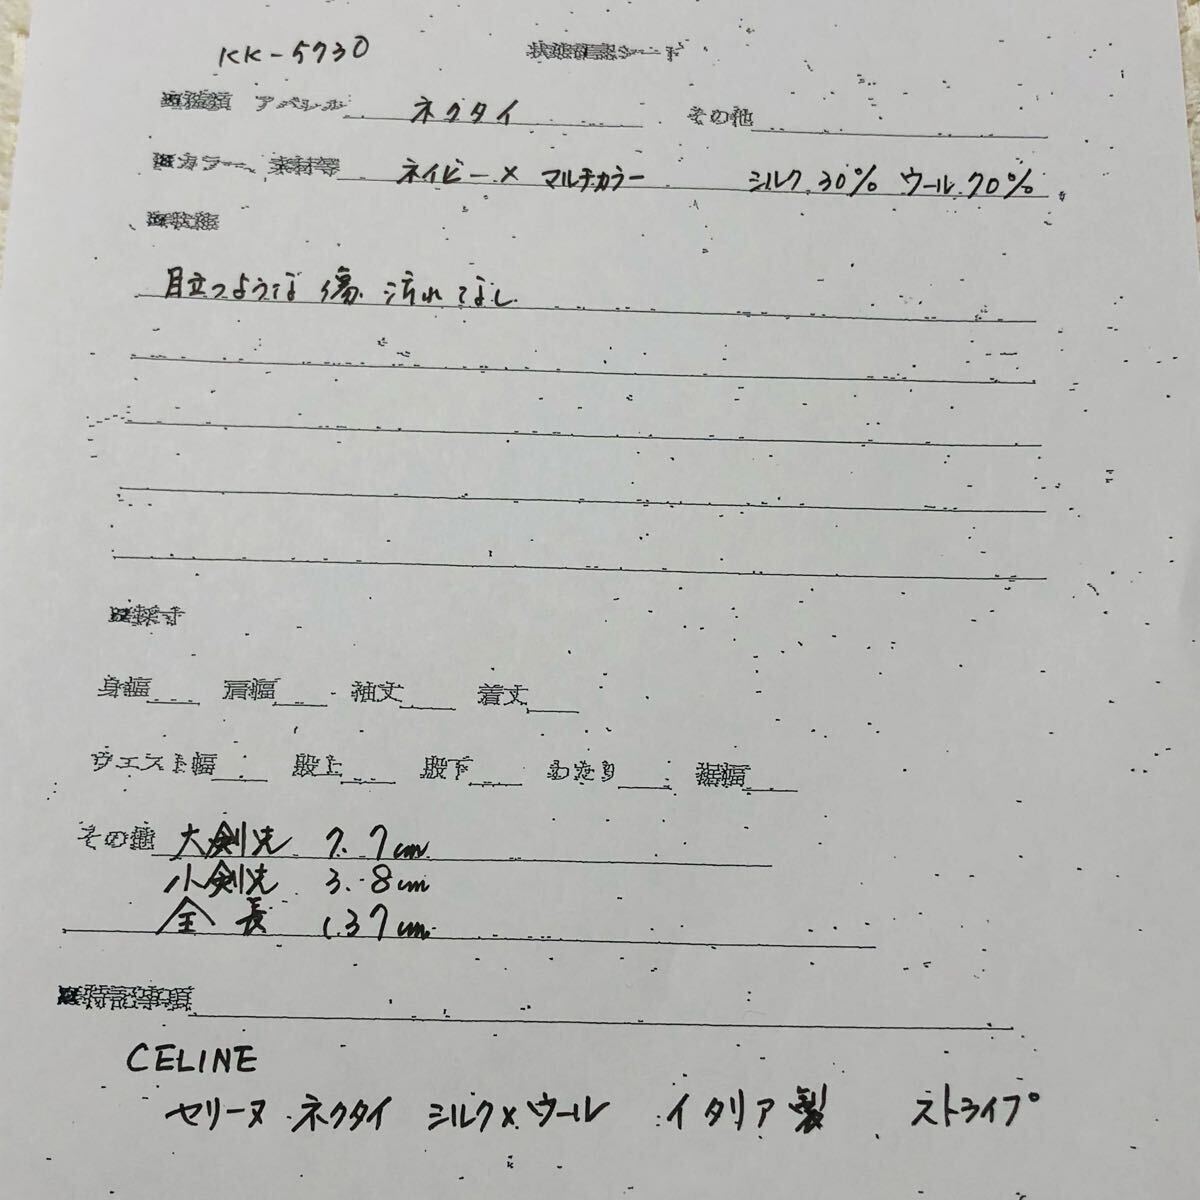 KK-5730 状態確認シート
■種類 アパレル ネクタイ その他
■カラー、素材等 ネイビー×マルチカラー シルク 30% ウール 70%
■状態
目立つような 傷、汚れ なし
■採寸
身幅 肩幅 袖丈 着丈
ウエスト幅 股上 股下 わたり 裾幅
その他 大剣先 7.7cm
小剣先 3.8cm
全長 137cm
■特記事項
CELINE
セリーヌ ネクタイ シルク×ウール イタリア製 ストライプ